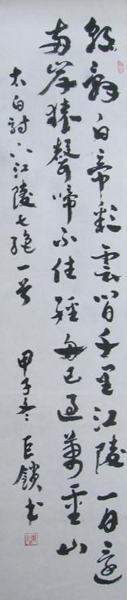 朝辞白帝彩雲間千里江陵一日還
兩岸猿聲啼不住輕舟已過萬重山
太白詩下江陵七絕一首 甲子冬 巨鎖書